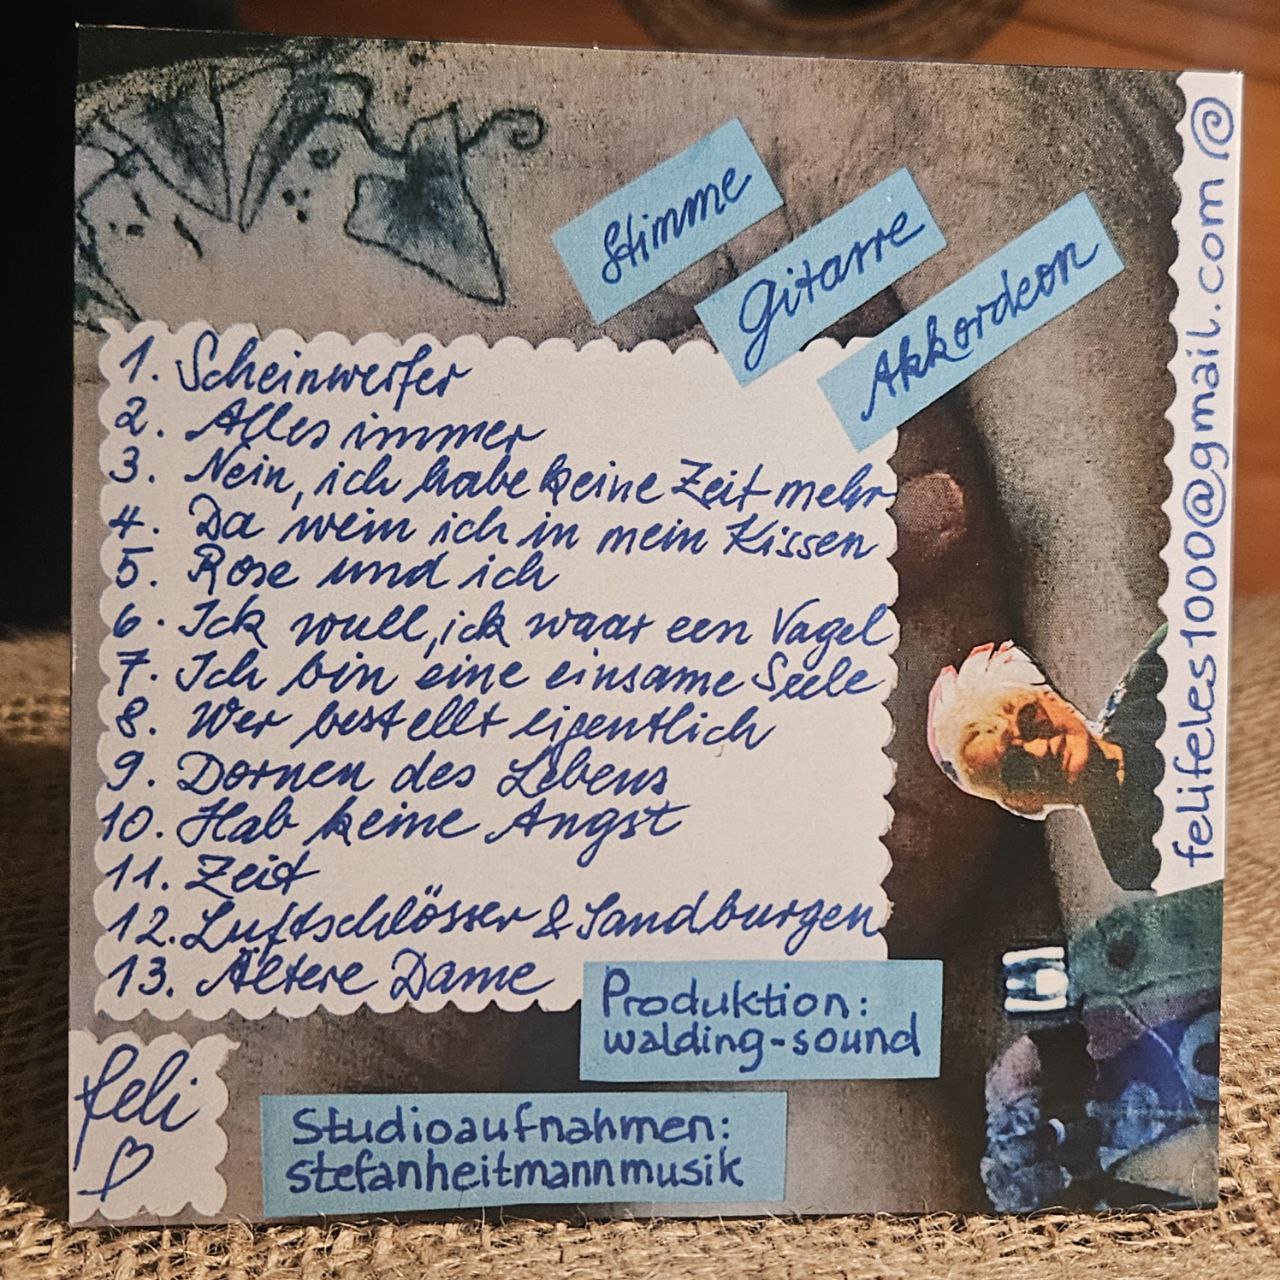 Stimme
Gitarre
Akkordeon
1. Scheinwerfer
2. Alles immer
3. Nein, ich habe keine Zeit mehr
4. Da wein ich in mein Kissen
5. Rose und ich
6. Ick wull, ick waar een Vagel
7. Ich bin eine einsame Seele
8. Wer bestellt eigentlich
9. Dornen des Lebens
10. Hab keine Angst
11. Zeit
12. Luftschlösser & Sandburgen
13. Ältere Dame
Produktion:
walding-sound
feli
Studioaufnahmen:
stefanheitmannmusik
felifeles1000@gmail.com @